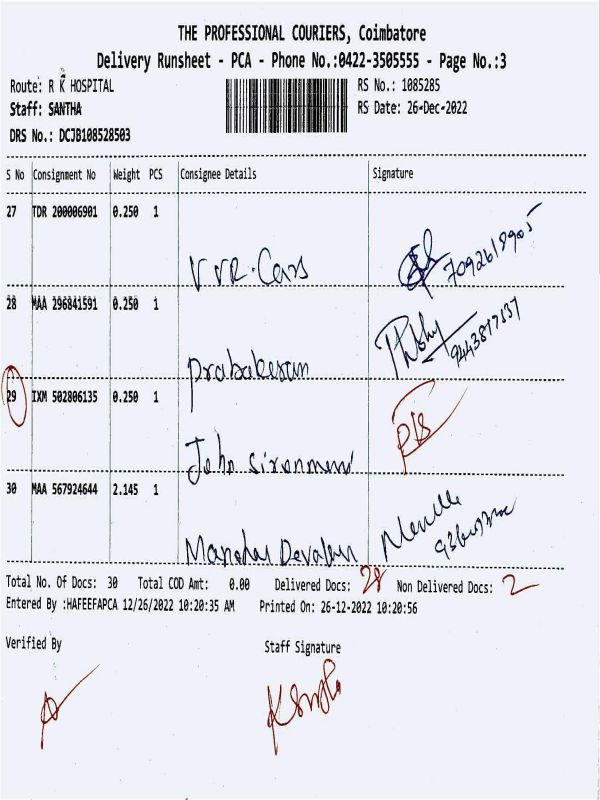 THE PROFESSIONAL COURIERS, Coimbatore
Delivery Runsheet - PCA - Phone No.:0422-3505555 - Page No.:3
Route: R K HOSPITAL
RS No.: 1085285
Staff: SANTHA
RS Date: 26-Dec-2022
DRS No.: DCJB108528503
S No Consignment No Weight PCS Consignee Details Signature
27 TDR 200006901 0.250 1
V V R. Cars 7092618905
28 MAA 296841591 0.250 1
Prabakeran
29 IXM 502806135 0.250 1
John
30 MAA 567924644 2.145 1
Total No. Of Docs: 30 Total COD Amt: 0.00 Delivered Docs: 28 Non Delivered Docs: 2
Entered By :HAFEEFAPCA 12/26/2022 10:20:35 AM Printed On: 26-12-2022 10:20:56
Verified By Staff Signature